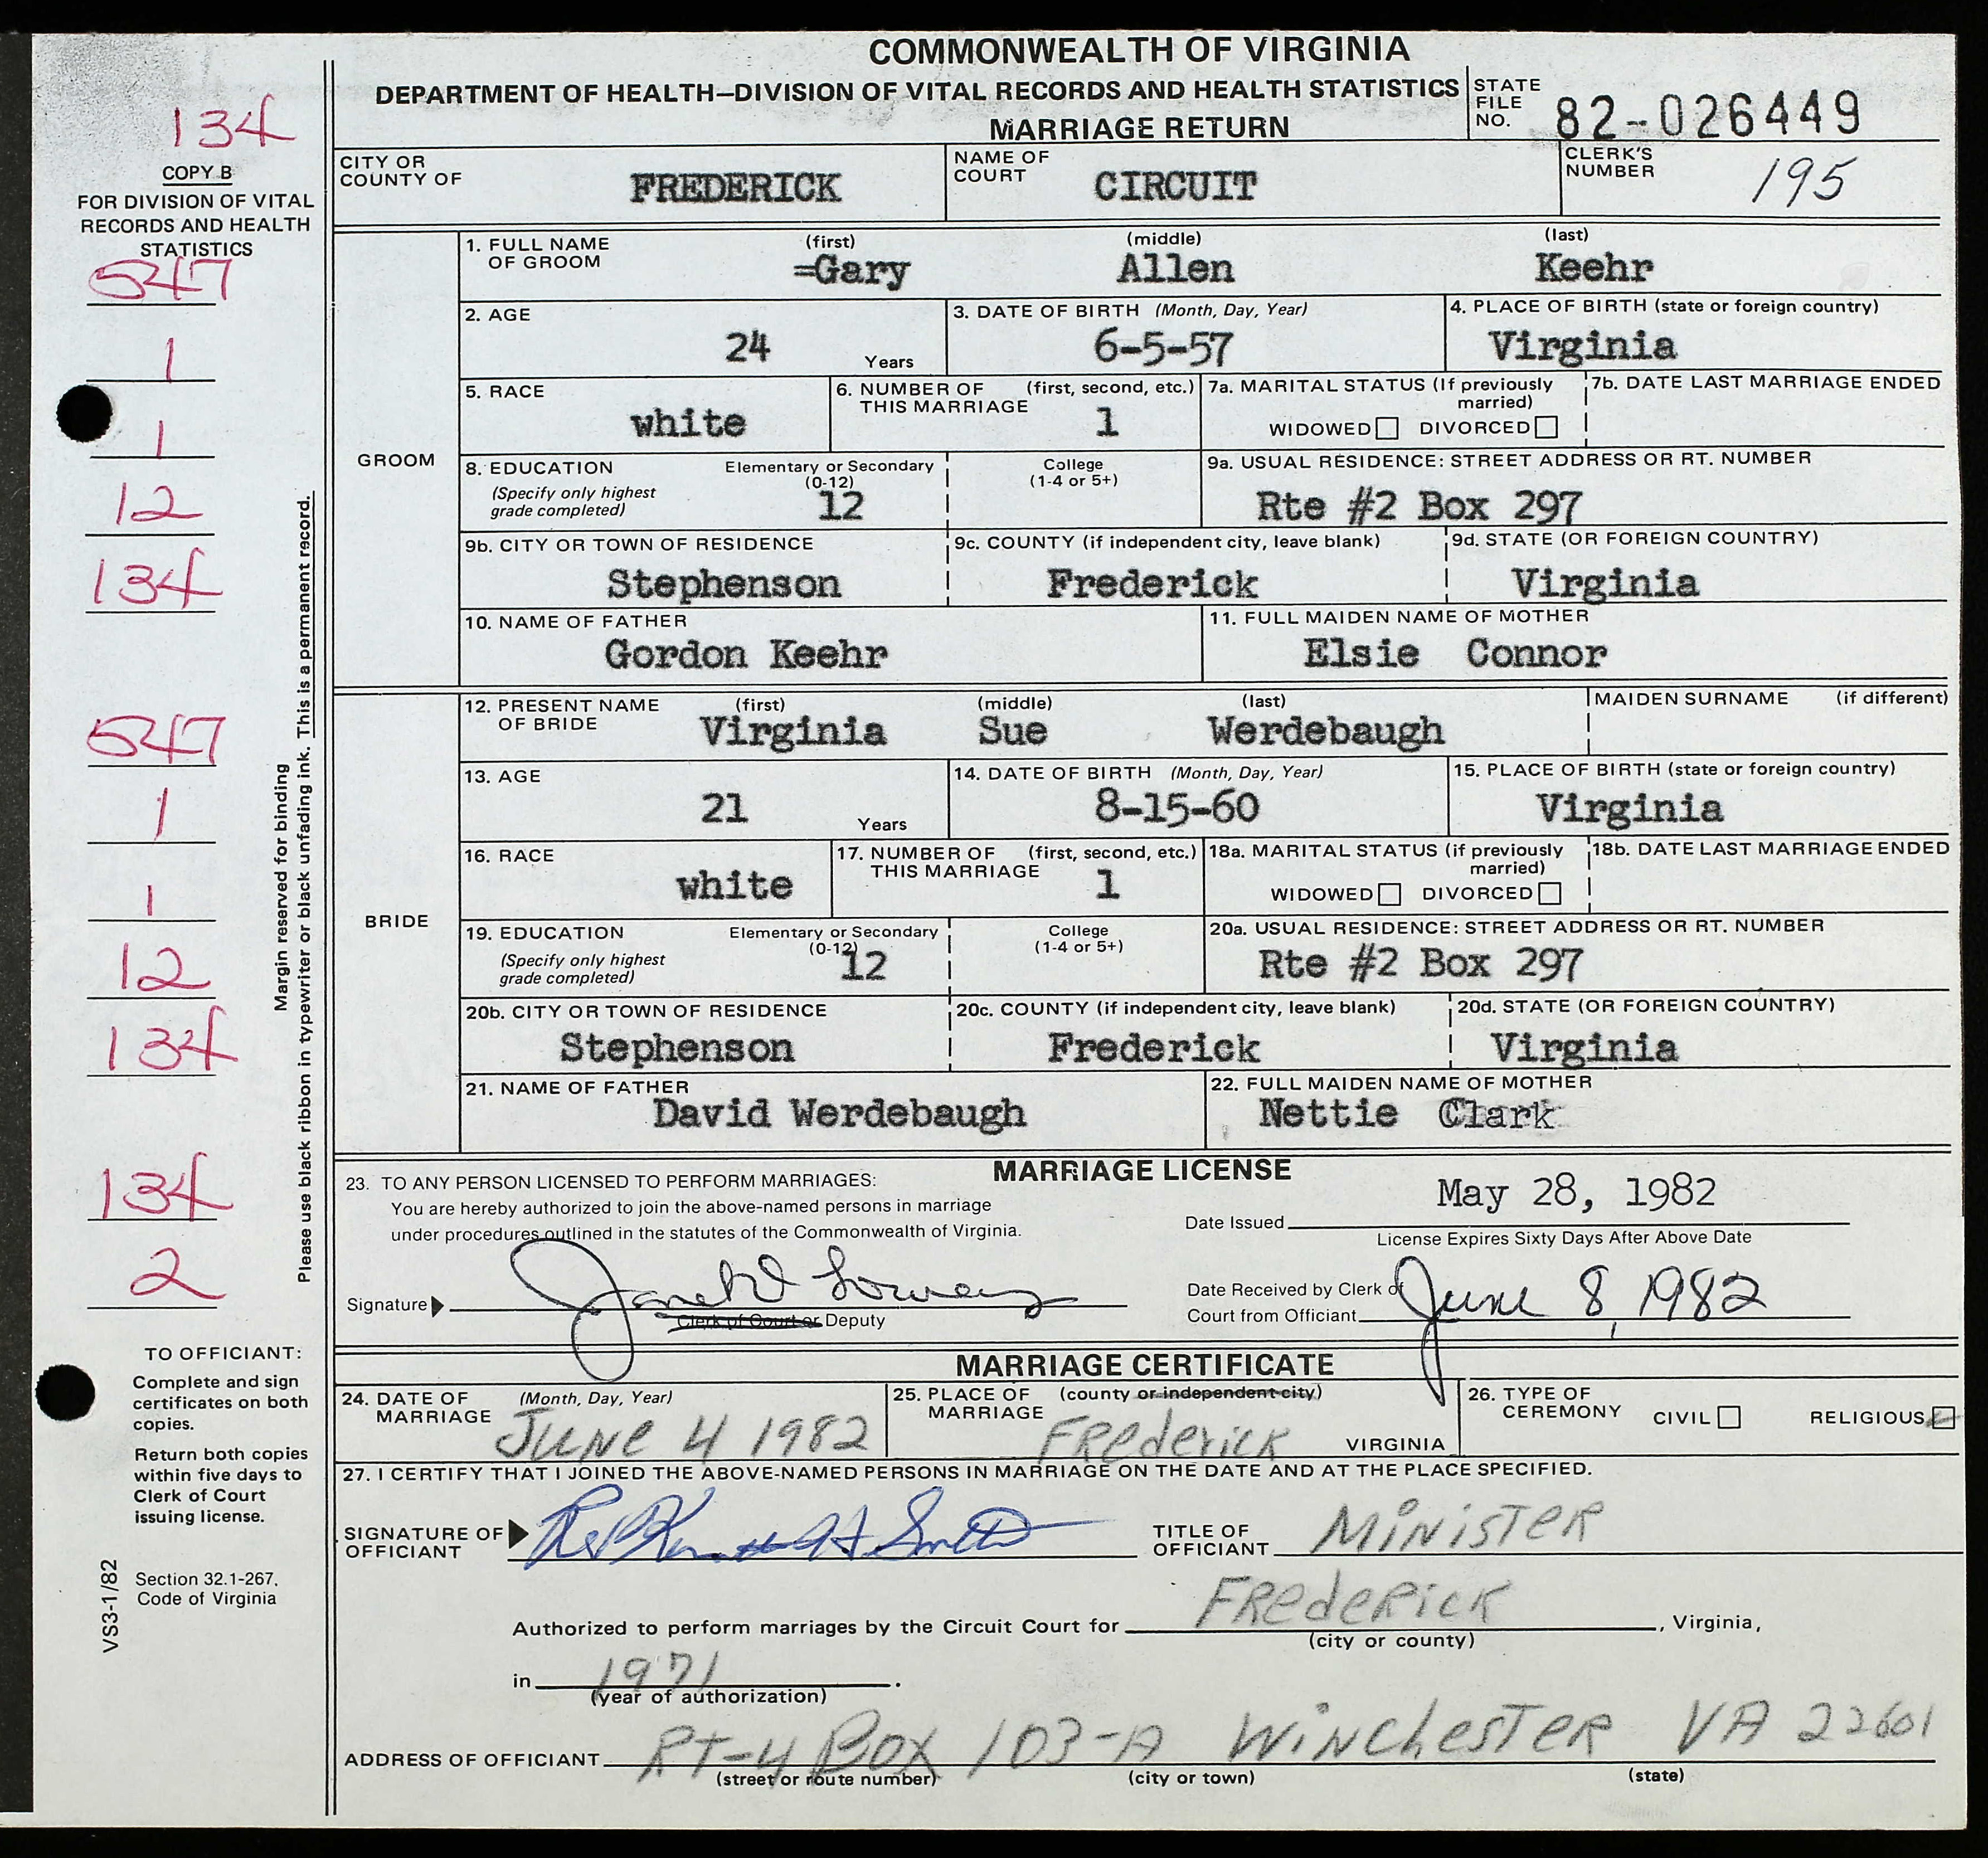 COMMONWEALTH OF VIRGINIA
DEPARTMENT OF HEALTH—DIVISION OF VITAL RECORDS AND HEALTH STATISTICS
MARRIAGE RETURN
STATE FILE NO. 82-026449
134
COPY B
FOR DIVISION OF VITAL
RECORDS AND HEALTH
STATISTICS
547
1
1
12
134
547
1
1
12
134
134
2
Margin reserved for binding
Please use black ribbon in typewriter or black unfading ink. This is a permanent record.
TO OFFICIANT:
Complete and sign
certificates on both
copies.
Return both copies
within five days to
Clerk of Court
issuing license.
Section 32.1-267,
Code of Virginia
VS3-1/82
CITY OR COUNTY OF FREDERICK
NAME OF COURT CIRCUIT
CLERK'S NUMBER 195
GROOM
1. FULL NAME OF GROOM (first) =Gary (middle) Allen (last) Keehr
2. AGE 24 Years
3. DATE OF BIRTH (Month, Day, Year) 6-5-57
4. PLACE OF BIRTH (state or foreign country) Virginia
5. RACE white
6. NUMBER OF THIS MARRIAGE (first, second, etc.) 1
7a. MARITAL STATUS (If previously married) WIDOWED DIVORCED
7b. DATE LAST MARRIAGE ENDED
8. EDUCATION (Specify only highest grade completed) Elementary or Secondary (0-12) 12
College (1-4 or 5+)
9a. USUAL RESIDENCE: STREET ADDRESS OR RT. NUMBER Rte #2 Box 297
9b. CITY OR TOWN OF RESIDENCE Stephenson
9c. COUNTY (if independent city, leave blank) Frederick
9d. STATE (OR FOREIGN COUNTRY) Virginia
10. NAME OF FATHER Gordon Keehr
11. FULL MAIDEN NAME OF MOTHER Elsie Connor
BRIDE
12. PRESENT NAME OF BRIDE (first) Virginia (middle) Sue (last) Werdebaugh
MAIDEN SURNAME (if different)
13. AGE 21 Years
14. DATE OF BIRTH (Month, Day, Year) 8-15-60
15. PLACE OF BIRTH (state or foreign country) Virginia
16. RACE white
17. NUMBER OF THIS MARRIAGE (first, second, etc.) 1
18a. MARITAL STATUS (if previously married) WIDOWED DIVORCED
18b. DATE LAST MARRIAGE ENDED
19. EDUCATION (Specify only highest grade completed) Elementary or Secondary (0-12) 12
College (1-4 or 5+)
20a. USUAL RESIDENCE: STREET ADDRESS OR RT. NUMBER Rte #2 Box 297
20b. CITY OR TOWN OF RESIDENCE Stephenson
20c. COUNTY (if independent city, leave blank) Frederick
20d. STATE (OR FOREIGN COUNTRY) Virginia
21. NAME OF FATHER David Werdebaugh
22. FULL MAIDEN NAME OF MOTHER Nettie Clark
MARRIAGE LICENSE
23. TO ANY PERSON LICENSED TO PERFORM MARRIAGES:
You are hereby authorized to join the above-named persons in marriage
under procedures outlined in the statutes of the Commonwealth of Virginia.
Date Issued May 28, 1982
License Expires Sixty Days After Above Date
Signature
Clerk of Court or Deputy
Date Received by Clerk of
Court from Officiant June 8, 1982
MARRIAGE CERTIFICATE
24. DATE OF MARRIAGE (Month, Day, Year) JUNE 4 1982
25. PLACE OF MARRIAGE (county or independent city) FREderick VIRGINIA
26. TYPE OF CEREMONY CIVIL RELIGIOUS
27. I CERTIFY THAT I JOINED THE ABOVE-NAMED PERSONS IN MARRIAGE ON THE DATE AND AT THE PLACE SPECIFIED.
SIGNATURE OF OFFICIANT Rev Kenneth H Smith
TITLE OF OFFICIANT MiNiSTER
Authorized to perform marriages by the Circuit Court for FREdeRicK, Virginia,
(city or county)
in 1971.
(year of authorization)
ADDRESS OF OFFICIANT RT-4 Box 103-A WiNchesTER VA 22601
(street or route number) (city or town) (state)